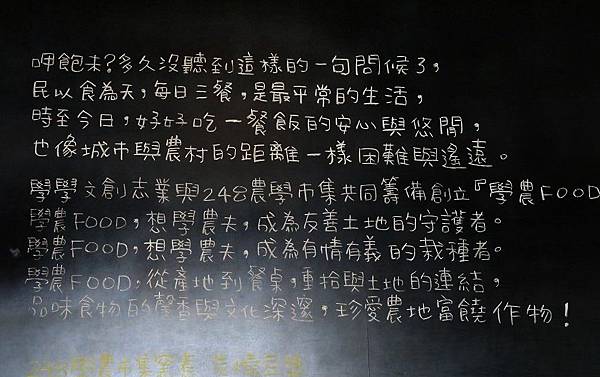 呷飽未?多久沒聽到這樣的一句問候了,
民以食為天,每日三餐,是最平常的生活,
時至今日,好好吃一餐飯的安心與悠閒,
也像城市與農村的距離一樣困難與遙遠。
學學文創志業與248農學市集共同籌備創立『學農FOOD
學農FOOD,想學農夫,成為友善土地的守護者。
學農FOOD,想學農夫,成為有情有義的栽種者。
學農FOOD,從產地到餐桌,重拾與土地的連結,
品味食物的馨香與文化深邃,珍愛農地富饒作物!
248學農市集